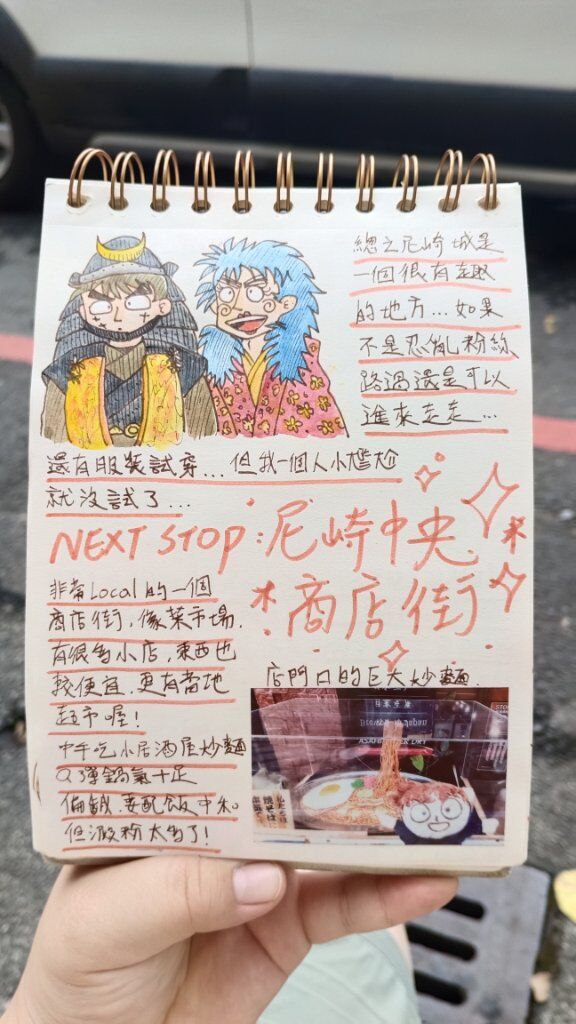 總之尼崎城是
一個很有趣
的地方...如果
不是忍亂粉絲
路過還是可以
進來走走...
還有服裝試穿...但我一個人小尷尬
就沒試了...
NEXT STOP:尼崎中央
商店街
非常Local的一個
商店街,像菜市場,
有很多小店,東西也
較便宜,更有當地
超市喔!
中午吃小居酒屋炒麵
Q彈鍋氣十足
偏鹹,要配飯中和
但澱粉太多了!
店門口的巨大炒麵.
日本京座
ASAHI SUPER DRY